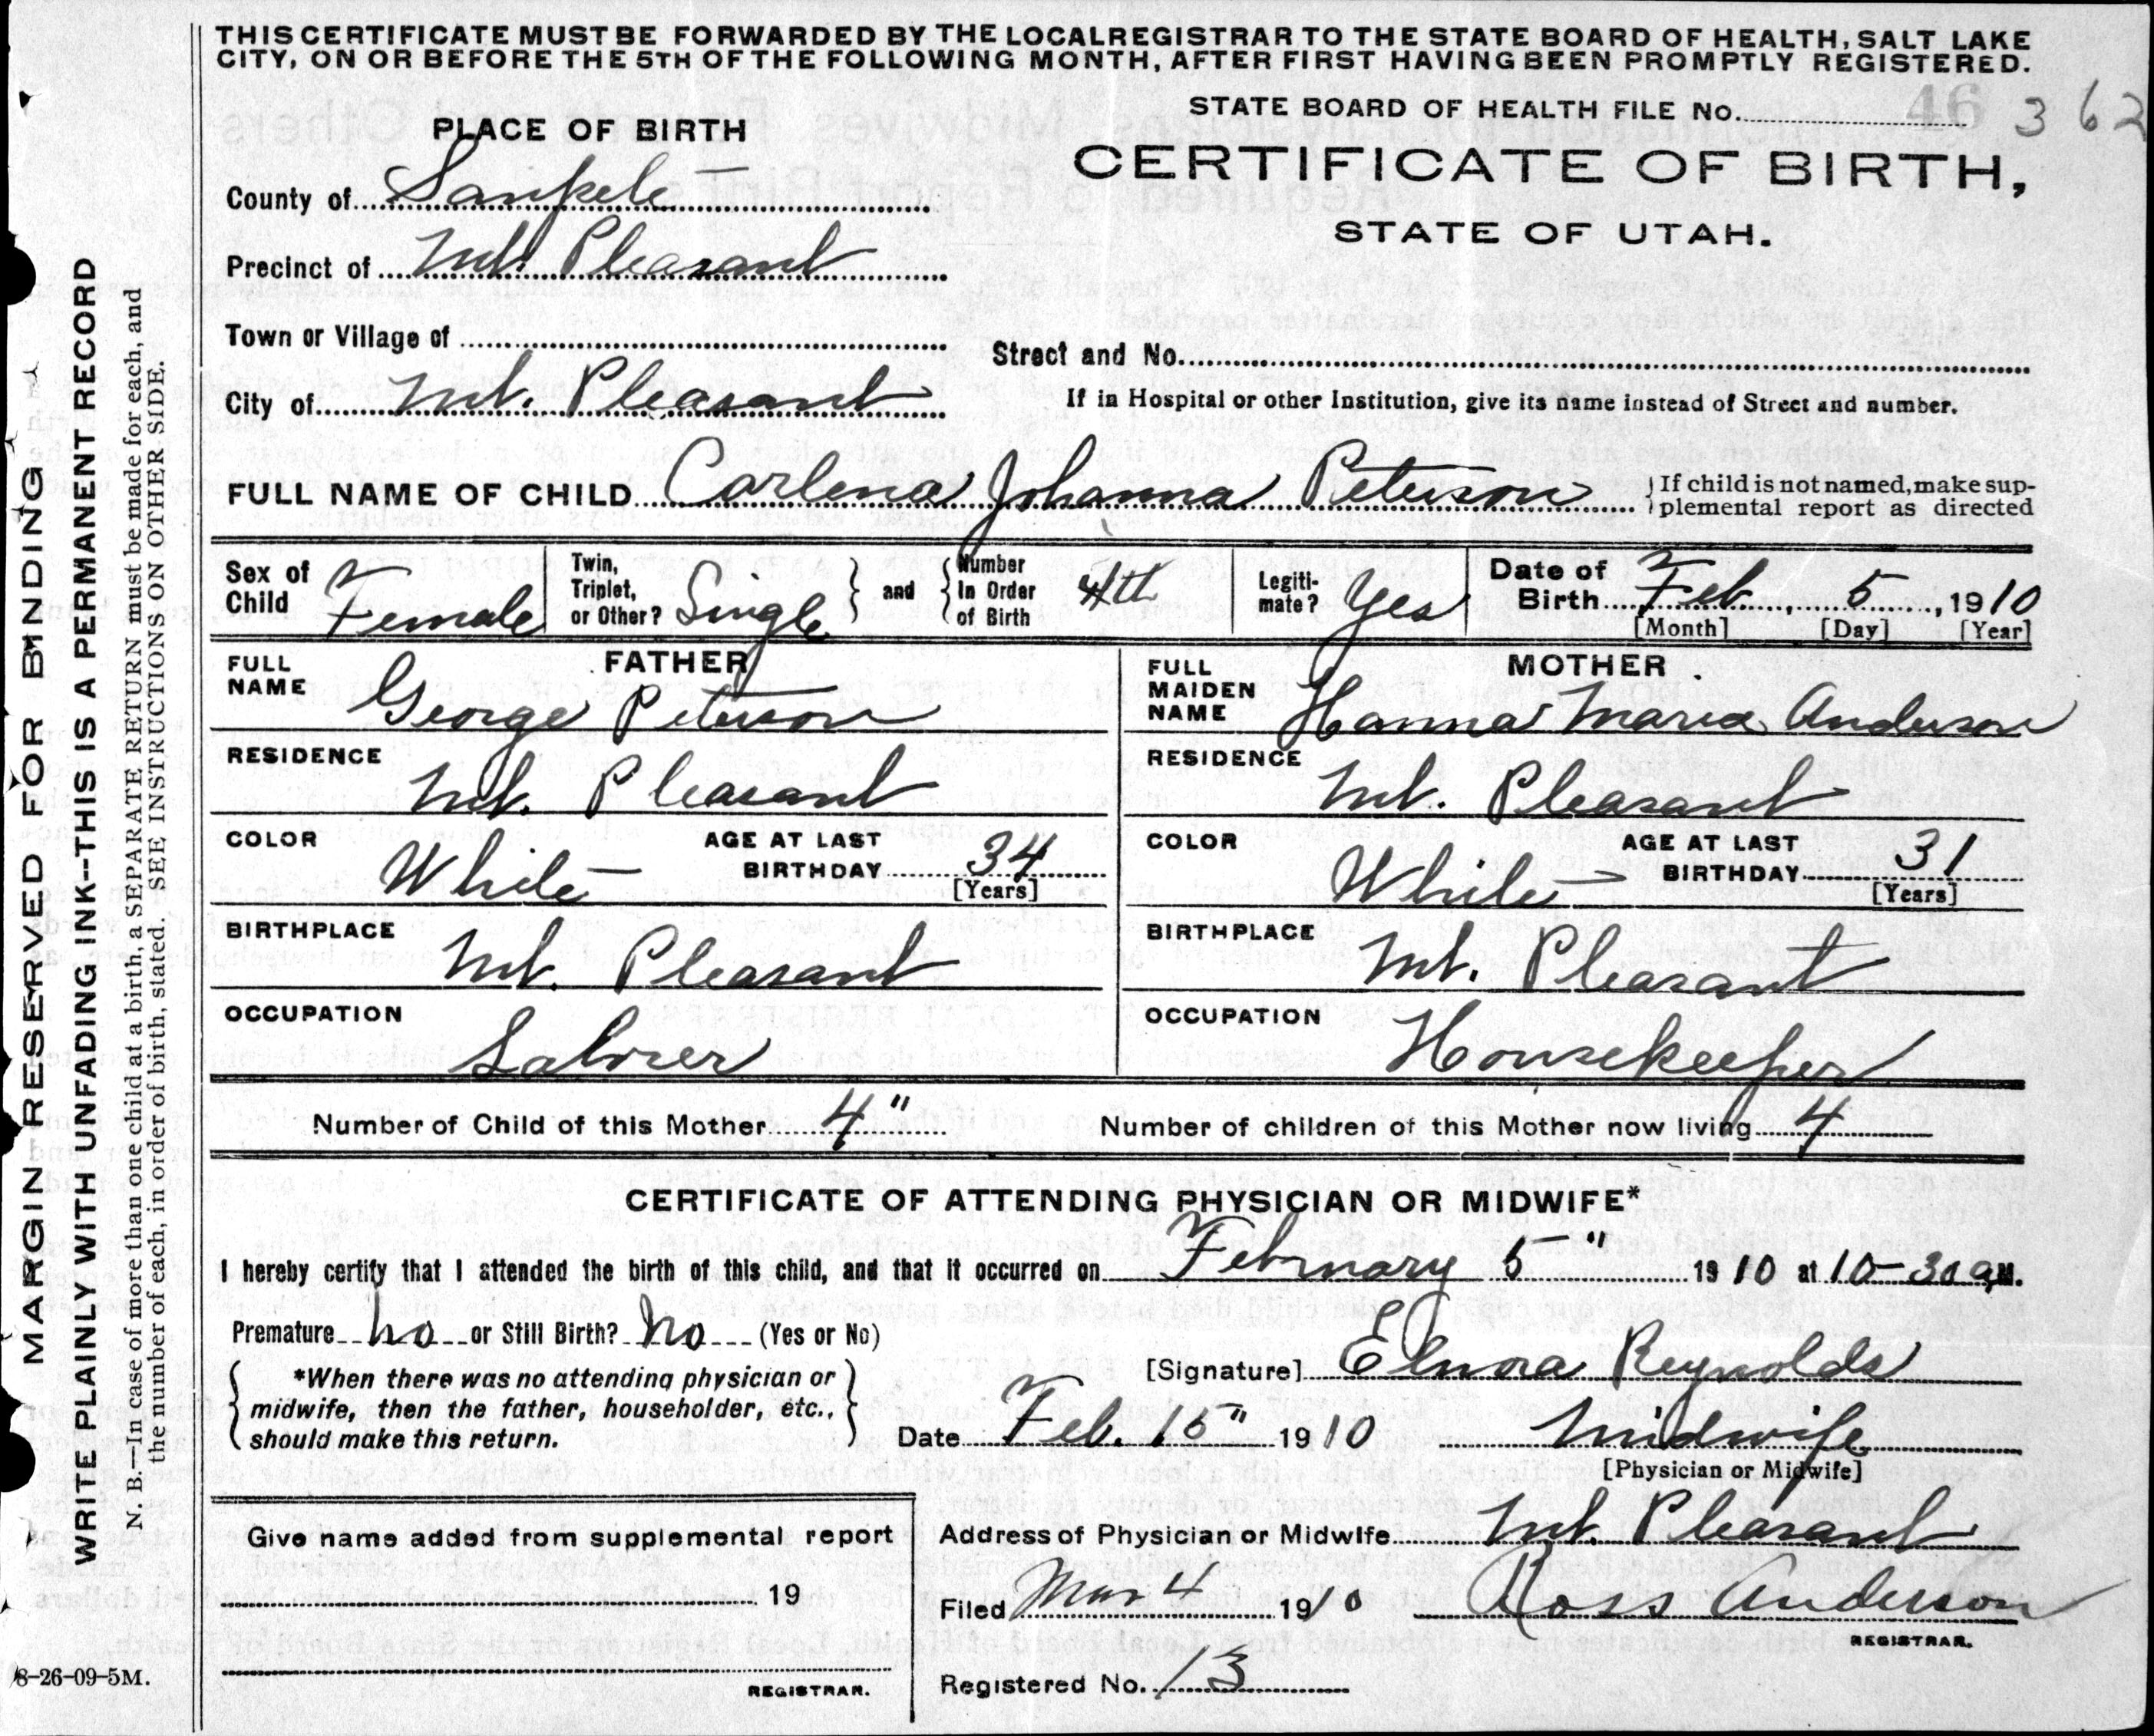 THIS CERTIFICATE MUST BE FORWARDED BY THE LOCAL REGISTRAR TO THE STATE BOARD OF HEALTH, SALT LAKE
CITY, ON OR BEFORE THE 5TH OF THE FOLLOWING MONTH, AFTER FIRST HAVING BEEN PROMPTLY REGISTERED.
STATE BOARD OF HEALTH FILE No. 46 362
PLACE OF BIRTH
CERTIFICATE OF BIRTH,
STATE OF UTAH.
County of Sanpete
Precinct of Mt. Pleasant
Town or Village of
Street and No.
City of Mt. Pleasant
If in Hospital or other Institution, give its name instead of Street and number.
FULL NAME OF CHILD Carlena Johanna Peterson
If child is not named, make sup-
plemental report as directed
Sex of Child Female
Twin, Triplet, or Other? Single
and
Number In Order of Birth 4th
Legiti-mate? Yes
Date of Birth Feb. 5, 1910
[Month] [Day] [Year]
FATHER
FULL NAME George Peterson
RESIDENCE Mt. Pleasant
COLOR White
AGE AT LAST BIRTHDAY 34
[Years]
BIRTHPLACE Mt. Pleasant
OCCUPATION Laborer
MOTHER
FULL MAIDEN NAME Hanna Maria Anderson
RESIDENCE Mt. Pleasant
COLOR White
AGE AT LAST BIRTHDAY 31
[Years]
BIRTHPLACE Mt. Pleasant
OCCUPATION Housekeeper
Number of Child of this Mother 4"
Number of children of this Mother now living 4
CERTIFICATE OF ATTENDING PHYSICIAN OR MIDWIFE*
I hereby certify that I attended the birth of this child, and that it occurred on February 5" 1910 at 10-30 a.M.
Premature no or Still Birth? no (Yes or No)
*When there was no attending physician or
midwife, then the father, householder, etc.,
should make this return.
[Signature] Elnora Reynolds
Date Feb. 15" 1910
Midwife
[Physician or Midwife]
Give name added from supplemental report
19
REGISTRAR.
Address of Physician or Midwife Mt. Pleasant
Filed Mar 4 1910
Ross Anderson
REGISTRAR.
Registered No. 13
MARGIN RESERVED FOR BINDING
WRITE PLAINLY WITH UNFADING INK--THIS IS A PERMANENT RECORD
N. B.—In case of more than one child at a birth, a SEPARATE RETURN must be made for each, and
the number of each, in order of birth, stated. SEE INSTRUCTIONS ON OTHER SIDE.
8-26-09-5M.